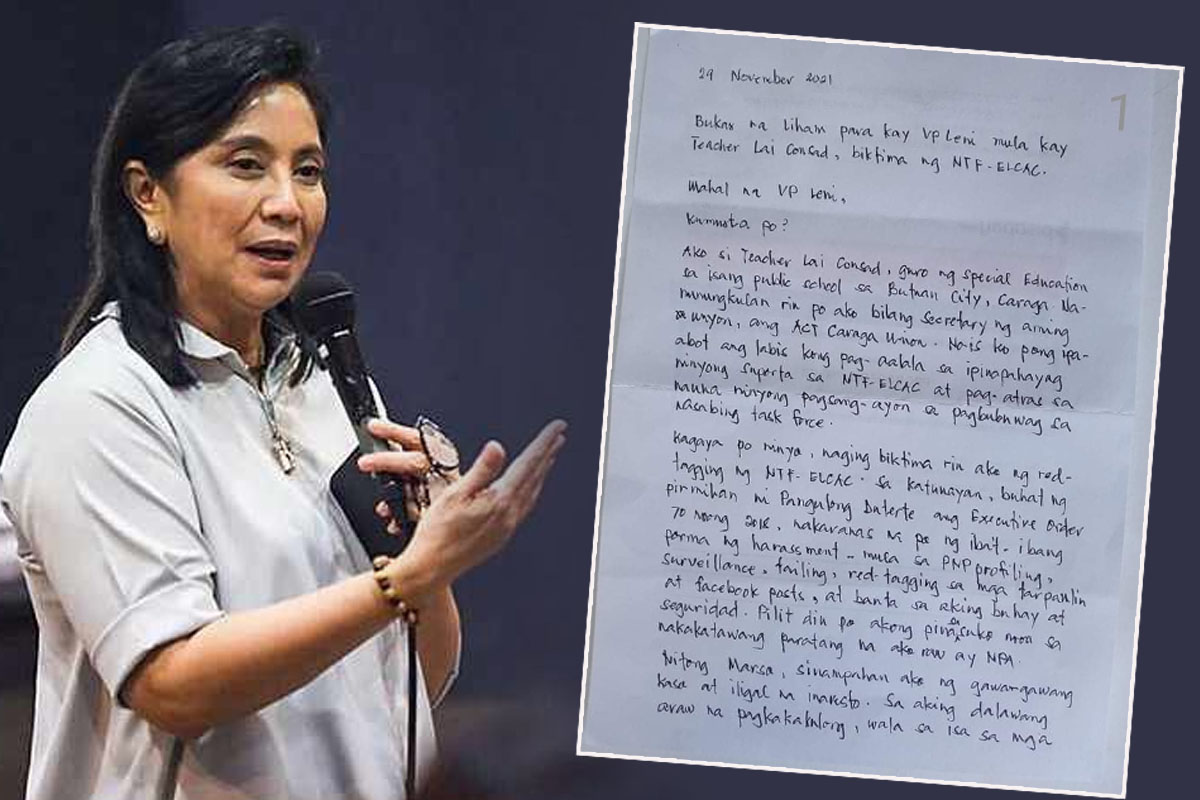 29 November 2021
1
Bukas na liham para kay VP Leni mula kay
Teacher Lai Consad, biktima ng NTF-ELCAC.
Mahal na VP Leni,
Kumusta po?
Ako si Teacher Lai Consad, guro ng Special Education
sa isang public school sa Butuan City, Caraga. Na-
nunungkulan rin po ako bilang secretary ng aming
unyon, ang ACT Caraga Union. Nais ko pong ipa-
abot ang labis kong pag-aalala sa ipinapahayag
ninyong suporta sa NTF-ELCAC at pag-atras sa
nauna ninyong pagsang-ayon sa pagbubuwag sa
nasabing task force.
Kagaya po ninyo, naging biktima rin ako ng red-
tagging ng NTF-ELCAC. Sa katunayan, buhat ng
pirmihan ni Pangulong Duterte ang Executive Order
70 noong 2018, nakaranas na po ng iba't-ibang
porma ng harassment - mula sa PNP profiling,
surveillance, tailing, red-tagging sa mga tarpaulin
at facebook posts, at banta sa aking buhay at
seguridad. Pilit din po akong pinasuko noon sa
nakakatawang paratang na ako raw ay NPA.
Nitong Marso, sinampahan ako ng gawa-gawang
kaso at iligal na inaresto. Sa aking dalawang
araw na pagkakakulong, wala sa isa sa mga